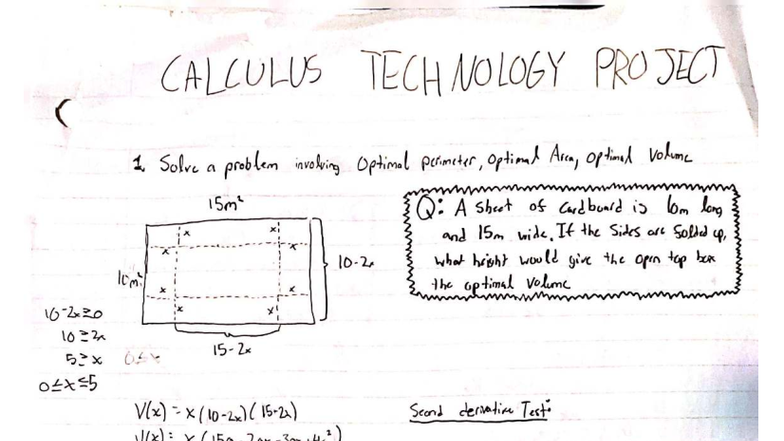 CALCULUS TECHNOLOGY PROJECT
1. Solve a problem involving Optimal perimeter, Optimal Area, Optimal Volume
15m²
Q: A sheet of cardboard is 10m long
and 15m wide. If the sides are folded up,
what height would give the open top box
the optimal volume
x x
x x
10m²
10-2x
x x
x x
15-2x
10-2x≥0
10≥2x
5≥x 0≤x
0≤x≤5
V(x) = x(10-2x)(15-2x)
Second derivative Test:
V(x) = x(